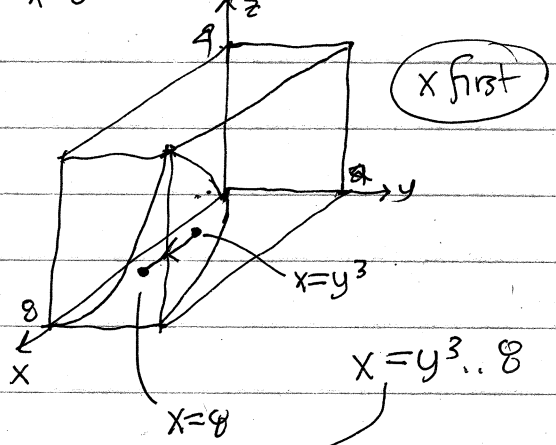 z
4
x first
y
x=y³
8
x
x=y³..8
x=8